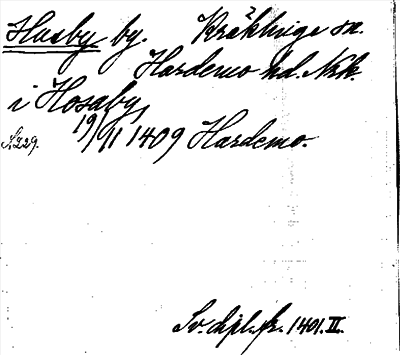 Husby by. Kräklinge sn.
Hardemo hd. Nrk.
i Hosaby
19/11 1409 Hardemo.
S. 229.
Sv. dipl. fr. 1401. II.